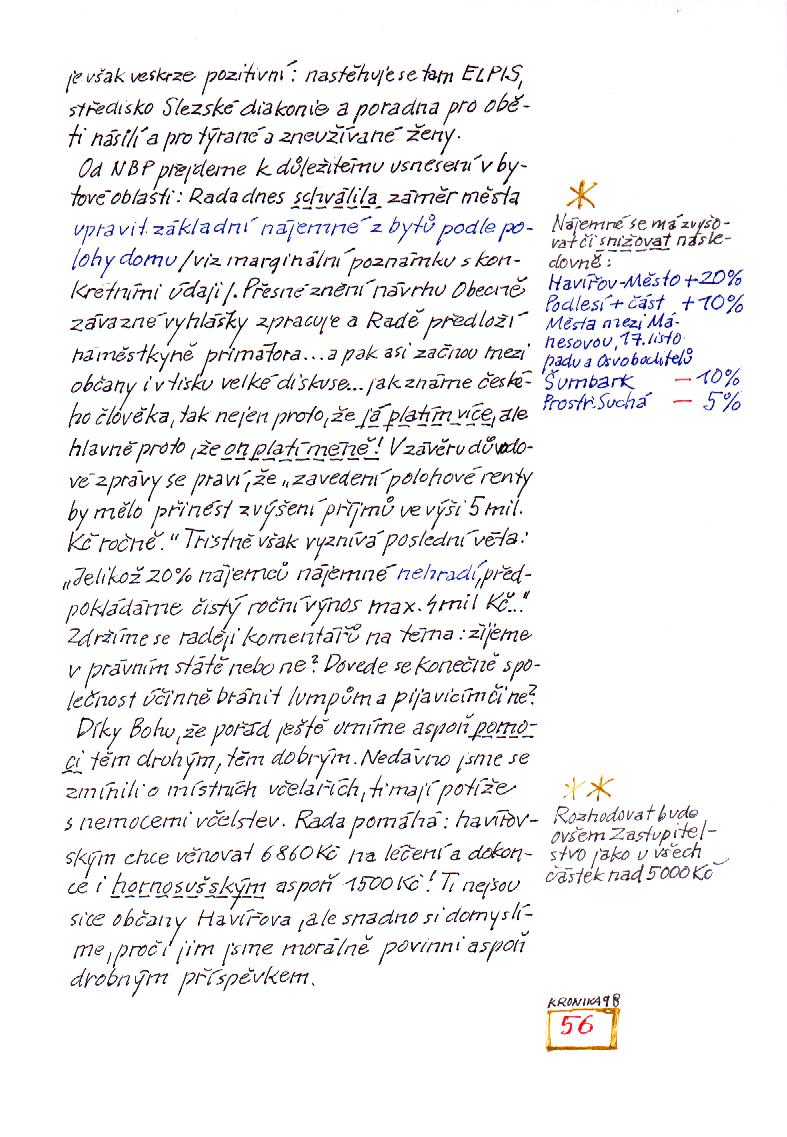 je však veskrze pozitivní: nastěhuje se tam ELPIS,
středisko Slezské diakonie a poradna pro obě-
ti násilí a pro týrané a zneužívané ženy.
Od NBP přejdeme k důležitému usnesení v by-
tové oblasti: Rada dnes schválila záměr města
upravit základní nájemné z bytů podle po-
lohy domu /viz marginální poznámku s kon-
krétními údaji/. Přesné znění návrhu Obecně
závazné vyhlášky zpracuje a Radě předloží
náměstkyně primátora... a pak asi začnou mezi
občany i v tisku velké diskuse... jak známe české-
ho člověka, tak nejen proto, že já platím více, ale
hlavně proto, že on platí méně! V závěru důvodo-
vé zprávy se praví, že „zavedení polohové renty
by mělo přinést zvýšení příjmů ve výši 5 mil.
Kč ročně." Tristně však vyznívá poslední věta:
„Jelikož 20% nájemců nájemné nehradí, před-
pokládáme čistý roční výnos max. 4 mil Kč..."
Zdržíme se raději komentářů na téma: žijeme
v právním státě nebo ne? Dovede se konečně spo-
lečnost účinně bránit lumpům a pijavicím či ne?
Díky Bohu, že pořád ještě umíme aspoň pomo-
ci těm druhým, těm dobrým. Nedávno jsme se
zmínili o místních včelařích, ti mají potíže
s nemocemi včelstev. Rada pomáhá: havířov-
ským chce věnovat 6860 Kč na léčení a dokon-
ce i hornosušským aspoň 1500 Kč! Ti nejsou
sice občany Havířova, ale snadno si domyslí-
me, proč i jim jsme morálně povinni aspoň
drobným příspěvkem.
*
Nájemné se má zvyšo-
vat či snižovat násle-
dovně:
Havířov-Město +20%
Podlesí + část +10%
Města mezi Má-
nesovou, 17.listo
padu a Osvoboditelů
Šumbark - 10%
Prostř. Suchá - 5%
**
Rozhodovat bude
ovšem Zastupitel-
stvo jako u všech
částek nad 5000 Kč
KRONIKA 98
56